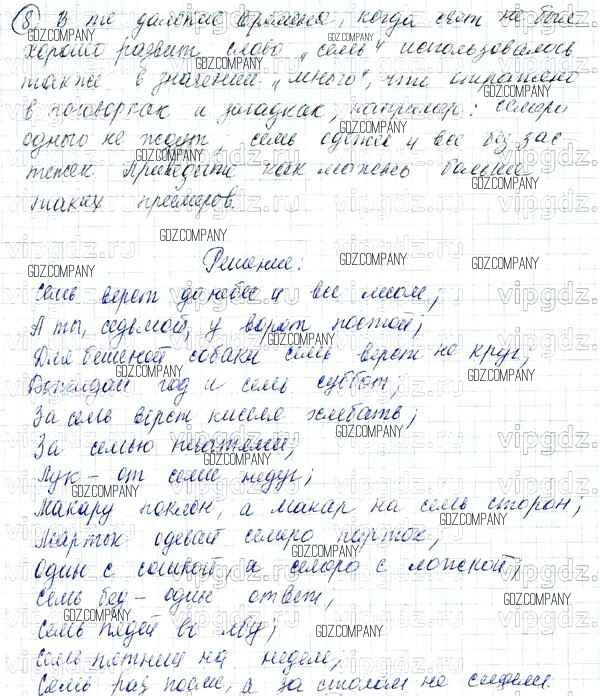 8 В те далекие времена, когда счет не был
хорошо развит слово "семь" использовалось
также в значении "много", что отражено
в поговорках и загадках, например: семеро
одного не ждут, семь одежек и все без зас
тежек Приведите как можно больше
таких примеров.
Решение:
Семь верст до небес и все лесом;
А ты, седьмой, у ворот постой;
Для бешеной собаки семь верст не круг;
год и семь суббот;
За семь верст киселя хлебать;
За семью печатями;
Лук – от семи недуг;
Макару поклон, а Макар на семь сторон;
Мартын одевай семеро порток;
Один с сошкой, а семеро с ложкой;
Семь бед – один ответ;
Семь пядей во лбу;
Семь пятниц на неделе;
Семь раз поели, а за столом не сидели
GDZ.COMPANY
vipgdz.ru